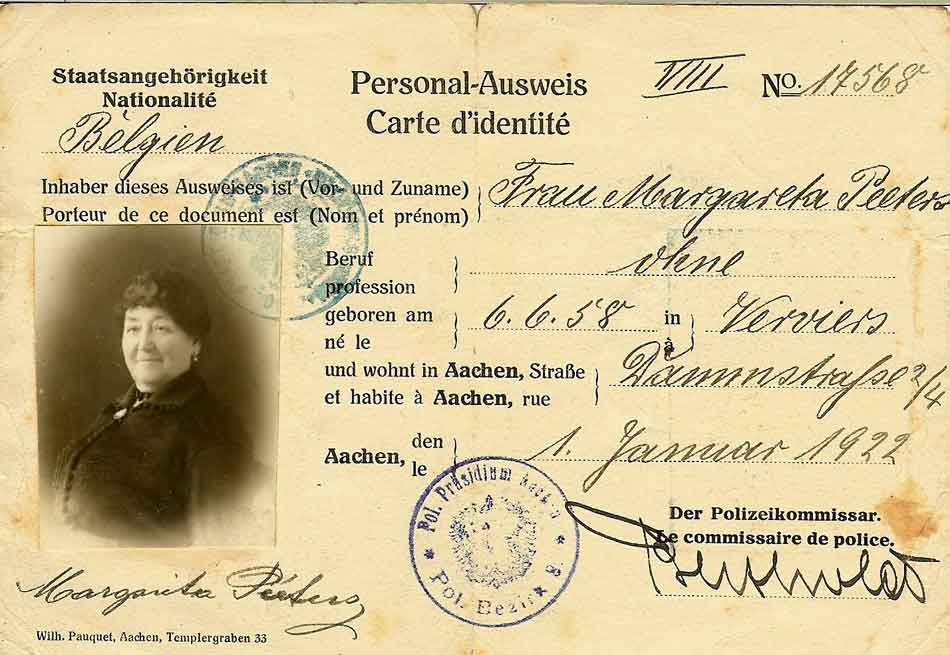 Staatsangehörigkeit
Nationalité
Belgien
Personal-Ausweis
Carte d'identité
VIII No. 17568
Inhaber dieses Ausweises ist (Vor- und Zuname)
Porteur de ce document est (Nom et prénom)
Frau Margareta Peeters
Beruf
profession
ohne
geboren am
né le
6.6.58 in
à
Verviers
und wohnt in Aachen, Straße
et habite à Aachen, rue
Dammstraße 2/4
Aachen, den
le
1. Januar 1922
Pol. Präsidium Aachen
* Pol. Bezirk 8 *
Der Polizeikommissar.
Le commissaire de police.
Margarita Peeters
Wilh. Pauquet, Aachen, Templergraben 33